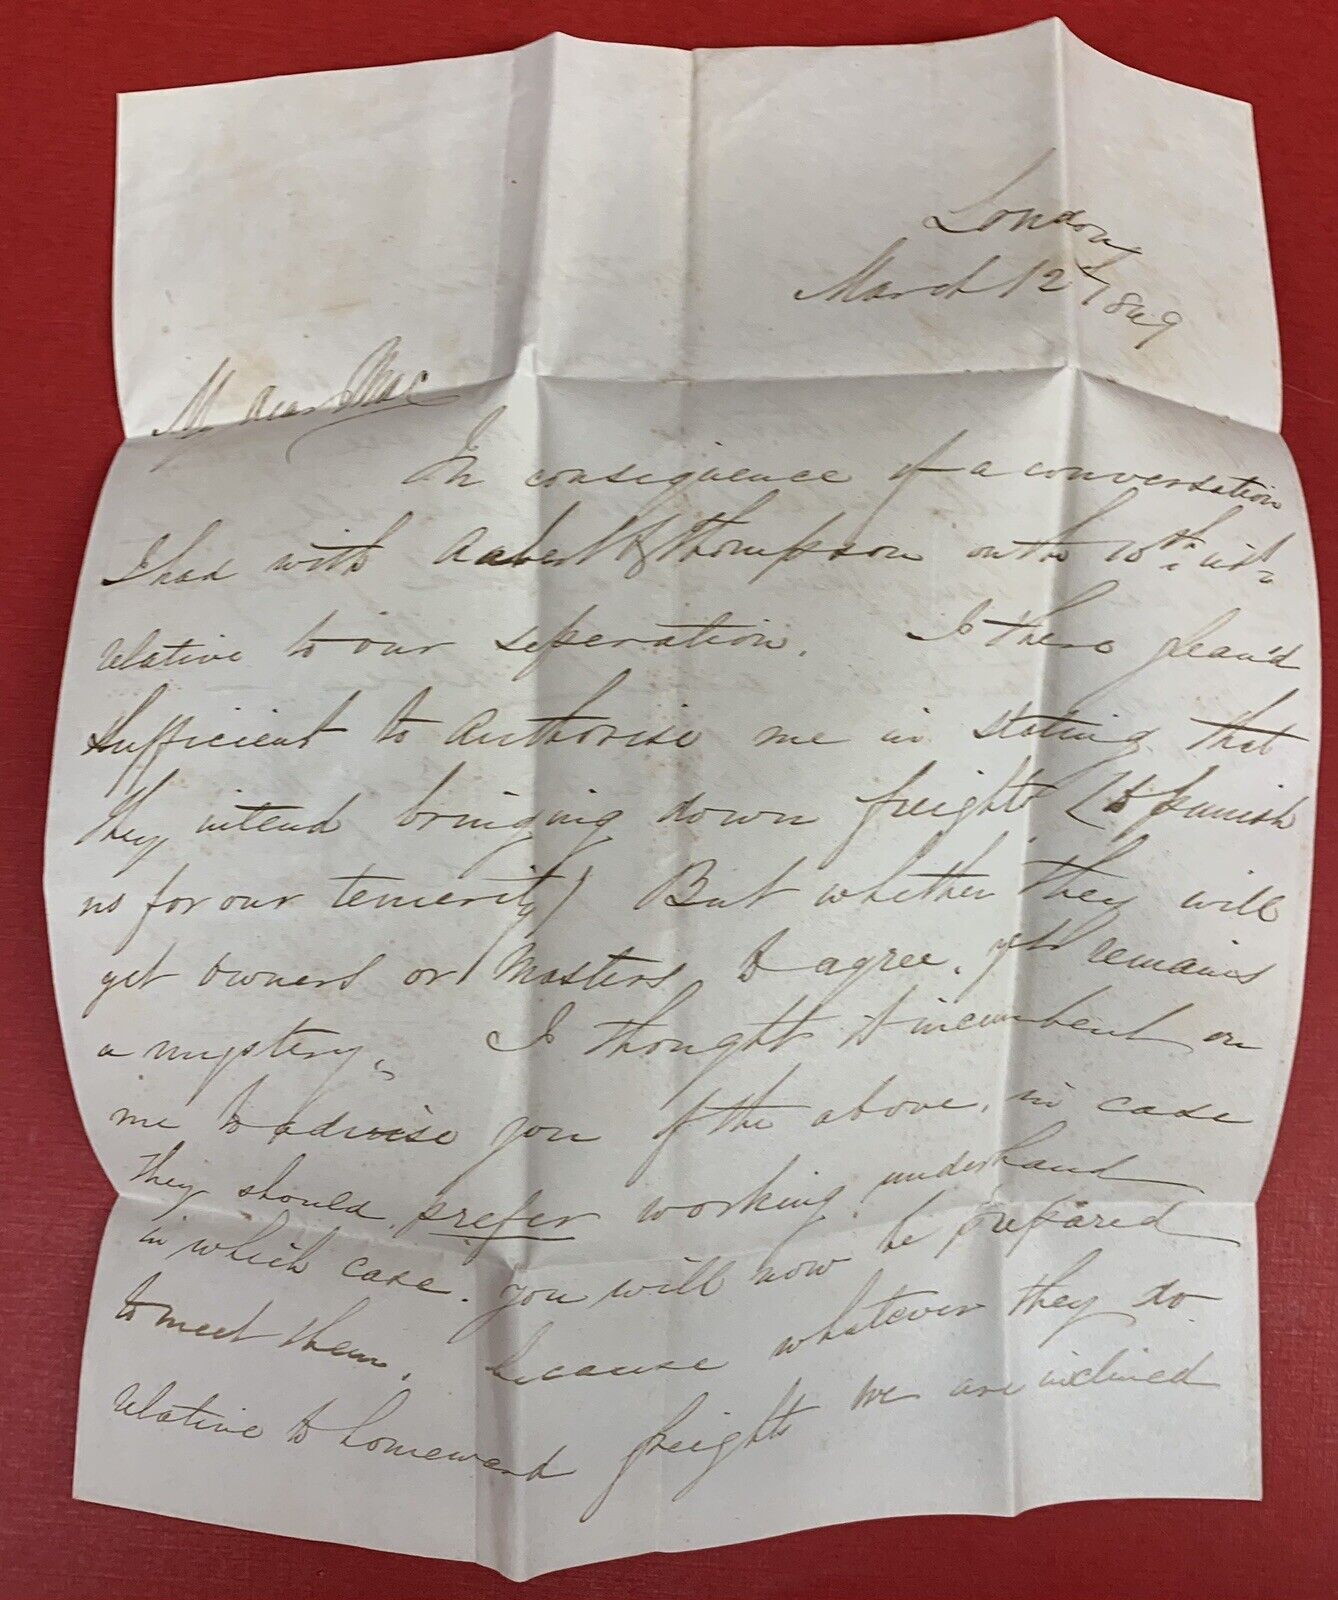 London
March 12th 1849
My dear Mac
In consequence of a conversation
I had with & Thompson on the 10th: ult
relative to our seperation. I there glean'd
sufficient to authorise me in stating that
they intend bringing down freights (to punish
us for our temerity) But whether they will
get owners or Masters to agree, yet remains
a mystery, I thought it incumbent on
me to advise you of the above, in case
they should prefer working underhand
in which case. you will now be prepared
to meet them. because whatever they do
relative to homeward freights we are inclined